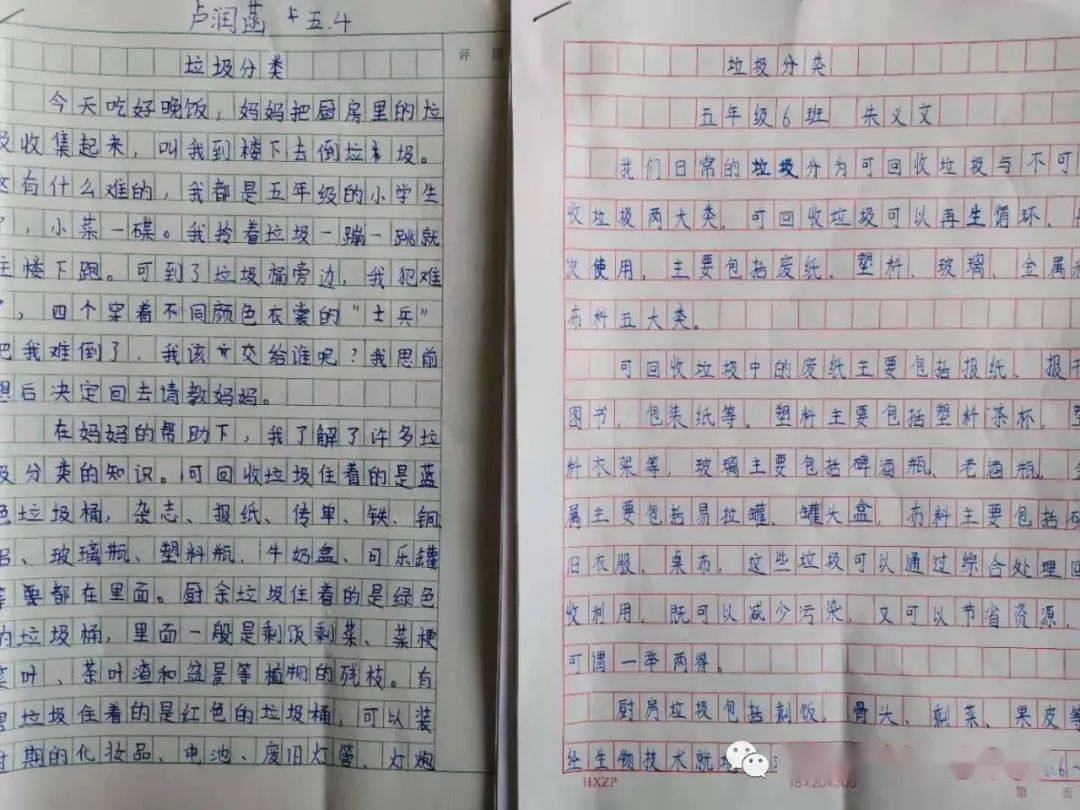 卢润菡 五.4
评 语
垃圾分类
今天吃好晚饭，妈妈把厨房里的垃
圾收集起来，叫我到楼下去倒垃圾。
这有什么难的，我都是五年级的小学生
了，小菜一碟。我拎着垃圾一蹦一跳就
往楼下跑。可到了垃圾桶旁边，我犯难
了，四个穿着不同颜色衣裳的“士兵”
把我难倒了．我该交给谁呢？我思前
想后决定回去请教妈妈。
在妈妈的帮助下，我了解了许多垃
圾分类的知识。可回收垃圾住着的是蓝
色垃圾桶，杂志、报纸、传单、铁、铜
铝、玻璃瓶、塑料瓶、牛奶盒、可乐罐
等要都在里面。厨余垃圾住着的是绿色
的垃圾桶，里面一般是剩饭剩菜、菜梗
菜叶、茶叶渣和盆景等植物的残枝。有
害垃圾住着的是红色的垃圾桶，可以装
过期的化妆品、电池、废旧灯管、灯炮
垃圾分类
五年级6班 朱义文
我们日常的垃圾分为可回收垃圾与不可
收垃圾两大类，可回收垃圾可以再生循环、
次使用，主要包括废纸、塑料、玻璃、金属和
布料五大类。
可回收垃圾中的废纸主要包括报纸、报刊
图书，包装纸等。塑料主要包括塑料茶杯，塑
料衣架等，玻璃主要包括碑酒瓶、老酒瓶。金
属主要包括易拉罐、罐头盒，布料主要包括破
旧衣服、桌布，这些垃圾可以通过综合处理回
收利用，既可以减少污染，又可以节省资源，
可谓一举两得。
厨房垃圾包括剩饭，骨头、剩菜、果皮等
经生物技术就
HXZP
15×20=300
第 页